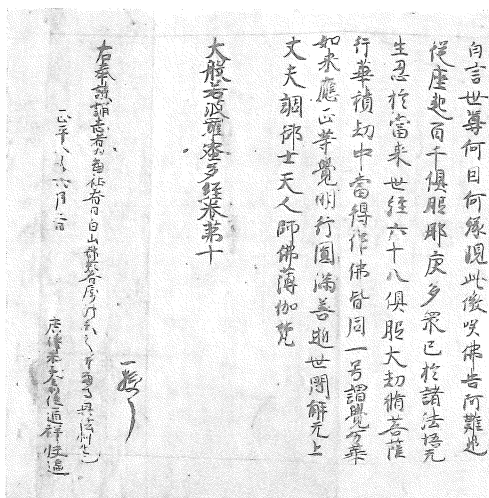 白言世尊何因何緣現此微咲佛告阿難是
從座起百千俱胝那庾多衆已於諸法悟无
生忍於當来世經六十八俱胝大劫脩菩薩
行華積劫中當得作佛皆同一号謂覺分華
如来應正等覺明行圓滿善逝世間解无上
丈夫調御士天人師佛薄伽梵
大般若波羅蜜多經卷第十
一挍了
右奉讀誦志者為 白山
正平八年六月二日